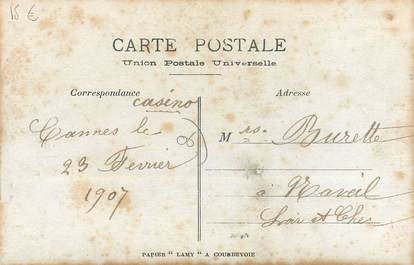 15 €
CARTE POSTALE
Union Postale Universelle
Correspondance
Adresse
casino
Cannes le
23 Fevrier
1907
Mrs. Burette
à Naveil
Loir et Cher
PAPIER "LAMY" A COURBEVOIE